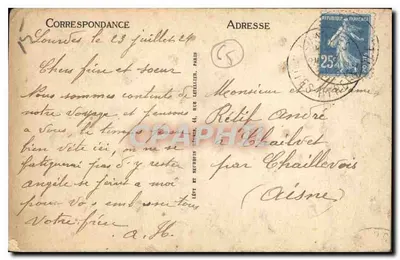 CORRESPONDANCE
ADRESSE
Lourdes le 23 juillet 24
Chers frère et soeur
Nous sommes contents de
notre voyage et pensons
a vous, le temps
bien vite ici, on ne se
fatiguerai pas d'y rester
angèle se joint a moi
pour vous embrasser tous
Votre frère
a. H.
Monsieur et Madame
Rétif André
a Chaillvet
par Chaillevois
(Aisne)
REPUBLIQUE FRANCAISE
25c
CPARAMA